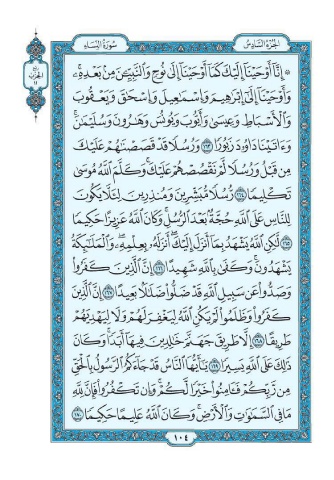 الجزء السادس
سورة النساء
ربع
الحزب
١١
۞ إِنَّا أَوْحَيْنَا إِلَيْكَ كَمَا أَوْحَيْنَا إِلَىٰ نُوحٍ وَالنَّبِيِّينَ مِنْ بَعْدِهِ ۚ
وَأَوْحَيْنَا إِلَىٰ إِبْرَاهِيمَ وَإِسْمَاعِيلَ وَإِسْحَاقَ وَيَعْقُوبَ
وَالْأَسْبَاطِ وَعِيسَىٰ وَأَيُّوبَ وَيُونُسَ وَهَارُونَ وَسُلَيْمَانَ ۚ
وَءَاتَيْنَا دَاوُودَ زَبُورًا ١٦٣ وَرُسُلًا قَدْ قَصَصْنَاهُمْ عَلَيْكَ
مِنْ قَبْلُ وَرُسُلًا لَمْ نَقْصُصْهُمْ عَلَيْكَ ۚ وَكَلَّمَ اللَّهُ مُوسَىٰ
تَكْلِيمًا ١٦٤ رُسُلًا مُبَشِّرِينَ وَمُنْذِرِينَ لِئَلَّا يَكُونَ
لِلنَّاسِ عَلَى اللَّهِ حُجَّةٌ بَعْدَ الرُّسُلِ ۚ وَكَانَ اللَّهُ عَزِيزًا حَكِيمًا
١٦٥ لَٰكِنِ اللَّهُ يَشْهَدُ بِمَا أَنْزَلَ إِلَيْكَ ۖ أَنْزَلَهُ بِعِلْمِهِ ۖ وَالْمَلَائِكَةُ
يَشْهَدُونَ ۚ وَكَفَىٰ بِاللَّهِ شَهِيدًا ١٦٦ إِنَّ الَّذِينَ كَفَرُوا
وَصَدُّوا عَنْ سَبِيلِ اللَّهِ قَدْ ضَلُّوا ضَلَالًا بَعِيدًا ١٦٧ إِنَّ الَّذِينَ
كَفَرُوا وَظَلَمُوا لَمْ يَكُنِ اللَّهُ لِيَغْفِرَ لَهُمْ وَلَا لِيَهْدِيَهُمْ
طَرِيقًا ١٦٨ إِلَّا طَرِيقَ جَهَنَّمَ خَالِدِينَ فِيهَا أَبَدًا ۚ وَكَانَ
ذَٰلِكَ عَلَى اللَّهِ يَسِيرًا ١٦٩ يَا أَيُّهَا النَّاسُ قَدْ جَاءَكُمُ الرَّسُولُ بِالْحَقِّ
مِنْ رَبِّكُمْ فَآمِنُوا خَيْرًا لَكُمْ ۚ وَإِنْ تَكْفُرُوا فَإِنَّ لِلَّهِ
مَا فِي السَّمَاوَاتِ وَالْأَرْضِ ۚ وَكَانَ اللَّهُ عَلِيمًا حَكِيمًا ١٧٠
١٠٤